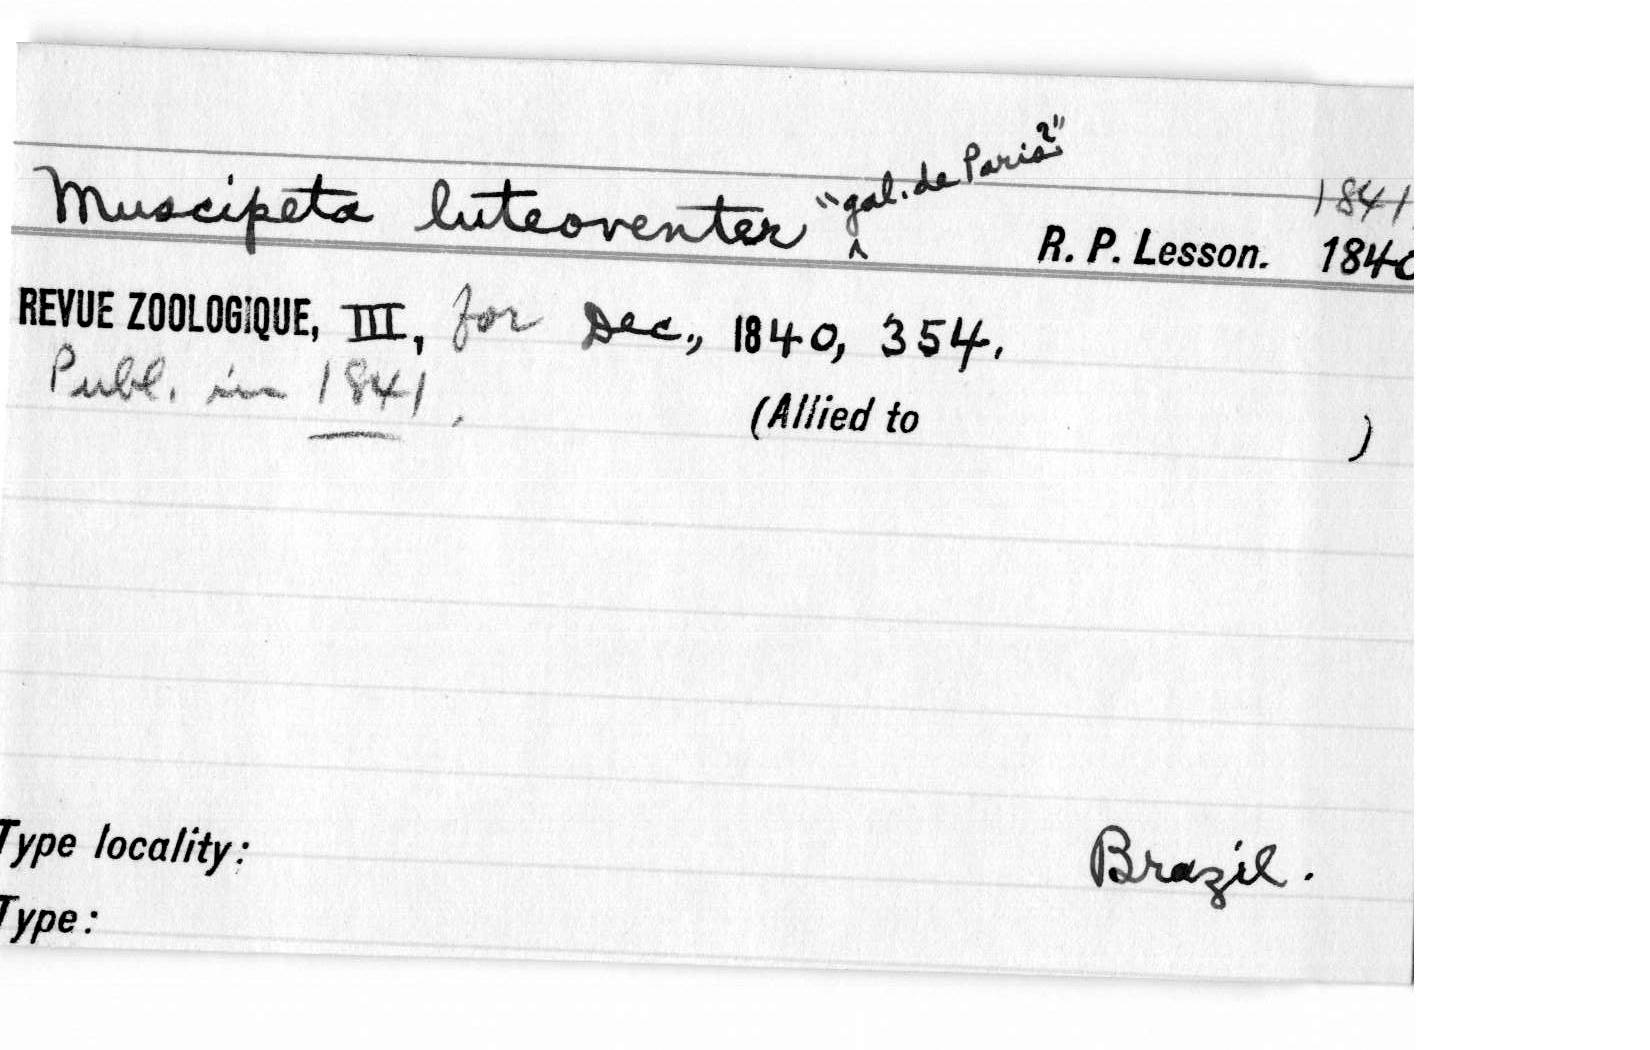 Muscipeta luteoventer ‸ "gal. de Paris?"
1841
R. P. Lesson. 1840
REVUE ZOOLOGIQUE, III, for Dec., 1840, 354.
Publ. in 1841.
(Allied to )
Type locality: Brazil.
Type: